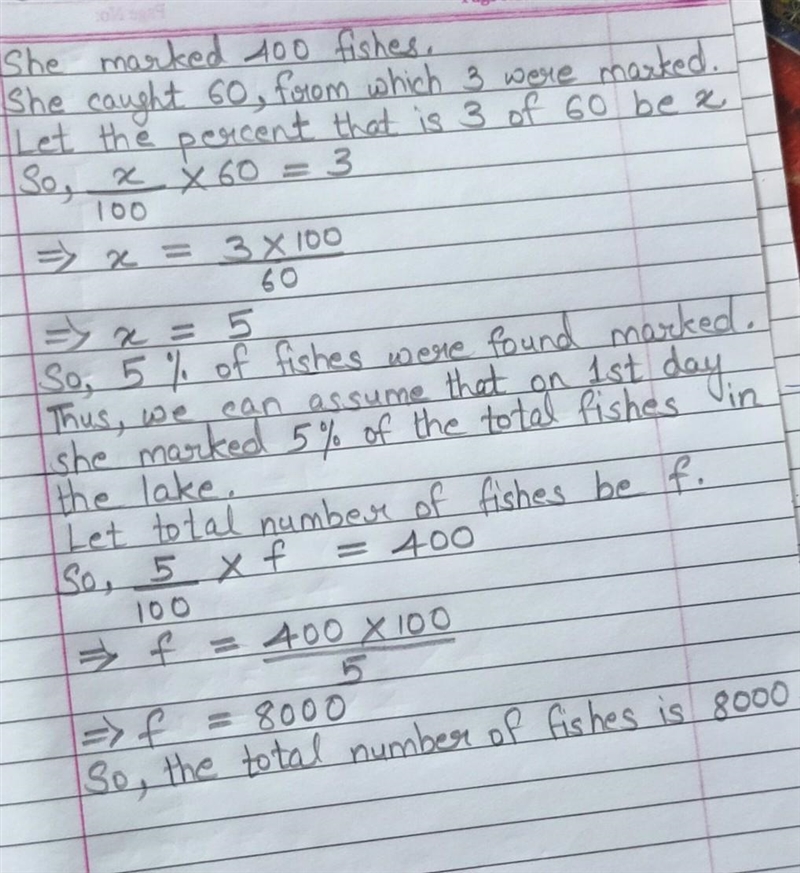 She marked 400 fishes.
She caught 60, from which 3 were marked.
Let the percent that is 3 of 60 be x
So, x/100 × 60 = 3
⇒ x = 3 × 100/60
⇒ x = 5
So, 5 % of fishes were found marked.
Thus, we can assume that on 1st day
she marked 5% of the total fishes in
the lake.
Let total number of fishes be f.
So, 5/100 × f = 400
⇒ f = 400 × 100/5
⇒ f = 8000
So, the total number of fishes is 8000